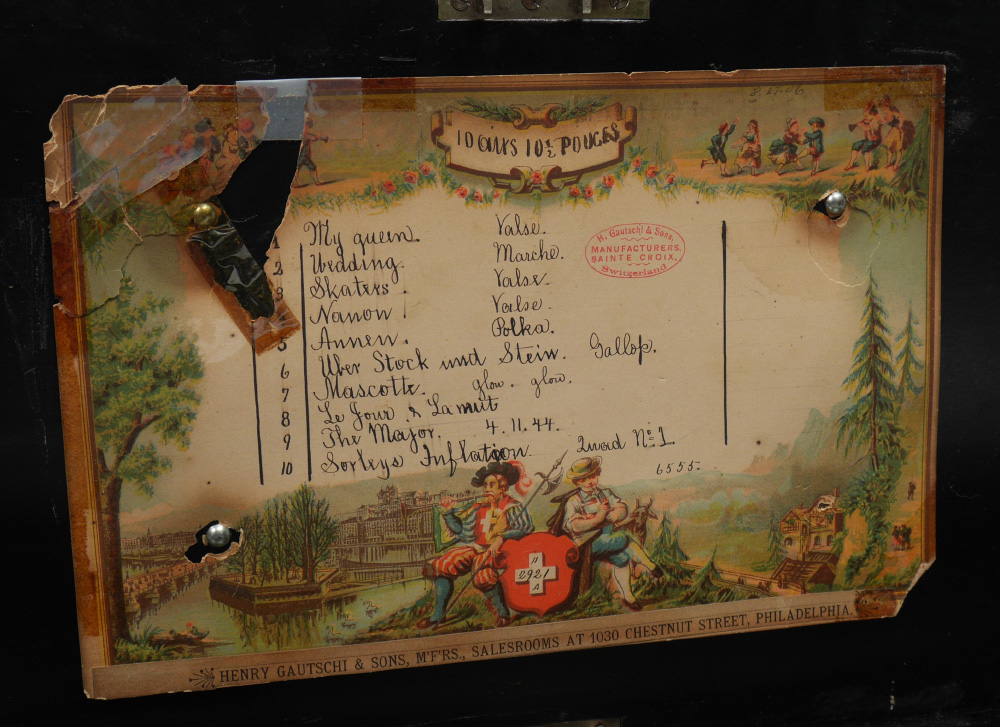 10 airs 10½ pouces
H. Gautschi & Sons,
MANUFACTURERS.
SAINTE CROIX,
Switzerland
1 My queen. Valse.
2 Wedding. Marche.
3 Skaters. Valse.
Nanon Valse.
5 Annen. Polka.
6 Uber Stock und Stein. Gallop.
7 Mascotte. glou. glou.
8 Le Jour & La nuit
9 The Major. 4.11.44.
10 Sorleys Inflation Quad No 1
6555.
2921
A
HENRY GAUTSCHI & SONS, M'F'RS., SALESROOMS AT 1030 CHESTNUT STREET, PHILADELPHIA.